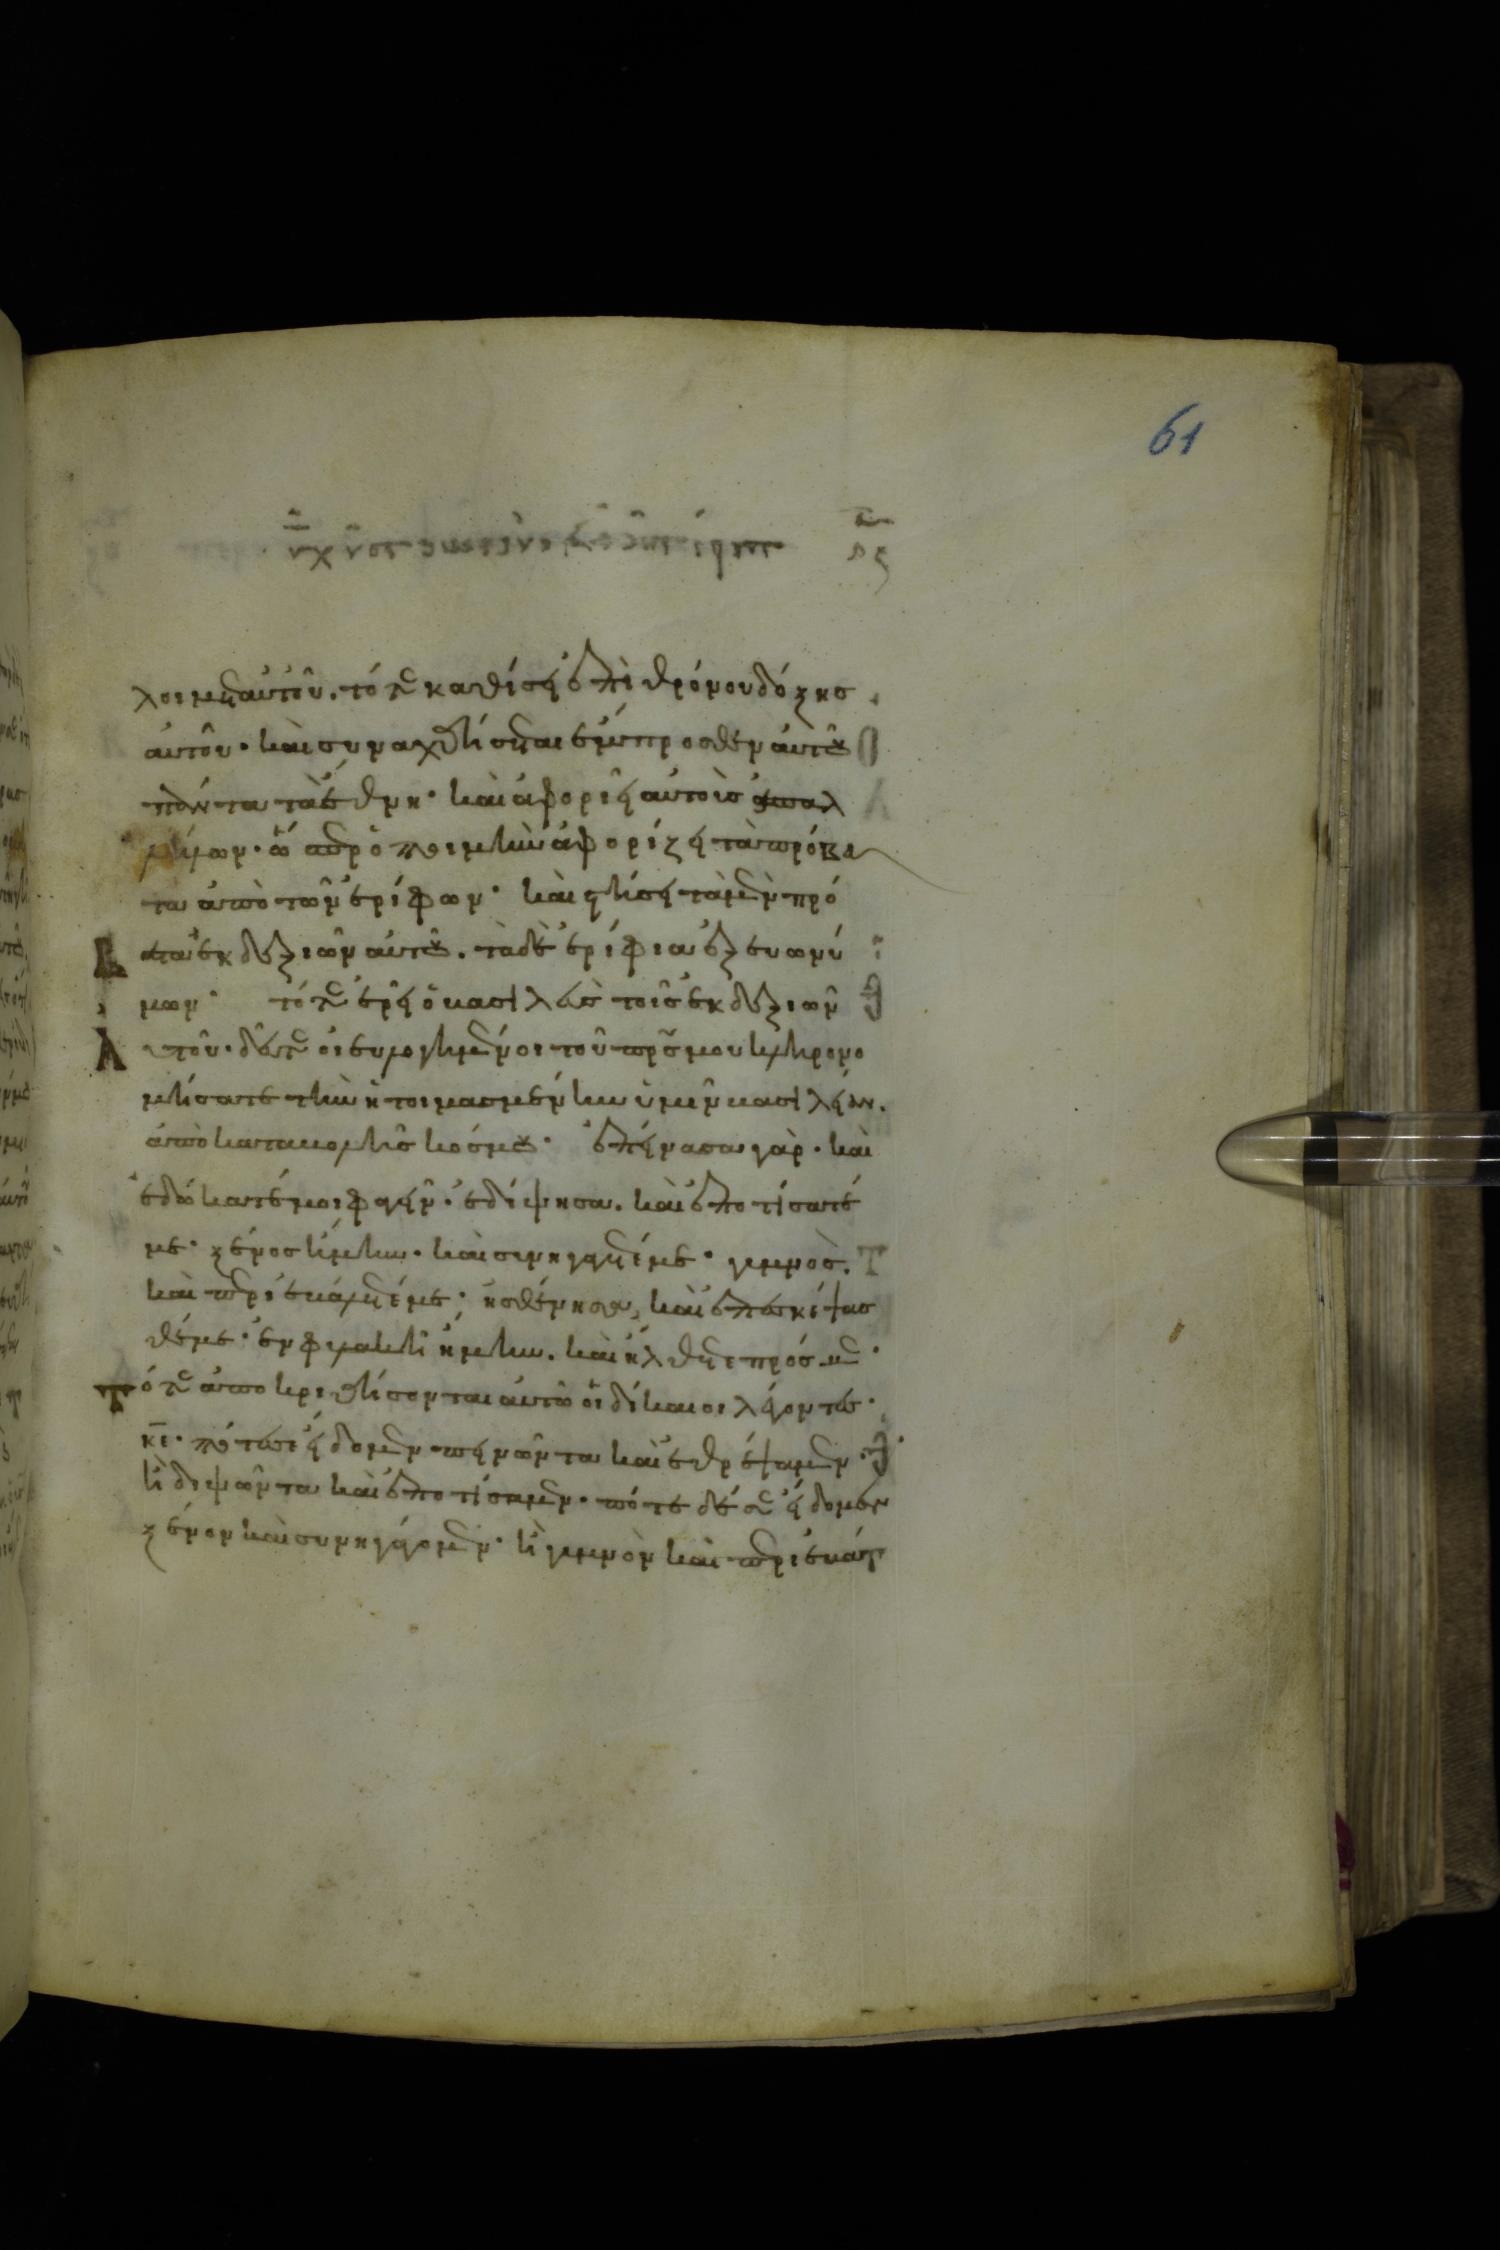 61
λοι μετ αὐτοῦ. τότε καθίσει ἐπὶ θρόνου δόξης
αὐτοῦ· καὶ συναχθήσεται ἔμπροσθεν αὐτοῦ
πάντα τὰ ἔθνη· καὶ ἀφοριεῖ αὐτοὺς ἀπ ἀλ
λήλων· ὥσπερ ὁ ποιμὴν ἀφορίζει τὰ πρόβα
τα ἀπὸ τῶν ἐρίφων· καὶ στήσει τὰ μὲν πρό
ατα ἐκ δεξιῶν αὐτοῦ. τὰ δὲ ἐρίφια ἐξ εὐωνύ
μων· τότε ἐρεῖ ὁ βασιλεὺς τοῖς ἐκ δεξιῶν
αὐτοῦ· δεῦτε οἱ εὐλογημένοι τοῦ πρς μου κληρονο
μήσατε τὴν ἡτοιμασμένην ὑμῖν βασιλείαν.
ἀπὸ καταβολῆς κόσμου· ἐπείνασα γὰρ. καὶ
ἐδώκατέ μοι φαγεῖν· ἐδίψησα. καὶ ἐποτίσατέ
με· ξένος ἤμην. καὶ συνηγάγετέ με· γυμνὸς.
καὶ περιεβάλετέ με· ἠσθένησα, καὶ ἐπεσκέψασ
θέ με· ἐν φυλακῆ ἤμην. καὶ ἤλθετε πρός με·
Τότε ἀποκριθήσονται αὐτῶ οἱ δίκαιοι λέγοντες·
κε· πότε σε εἴδομεν πεινῶντα καὶ ἐθρέψαμεν·
ἢ διψῶντα καὶ ἐποτίσαμεν· πότε δέ σε εἴδομεν
ξένον καὶ συνηγάγομεν· ἢ γυμνὸν καὶ περιεβάλ